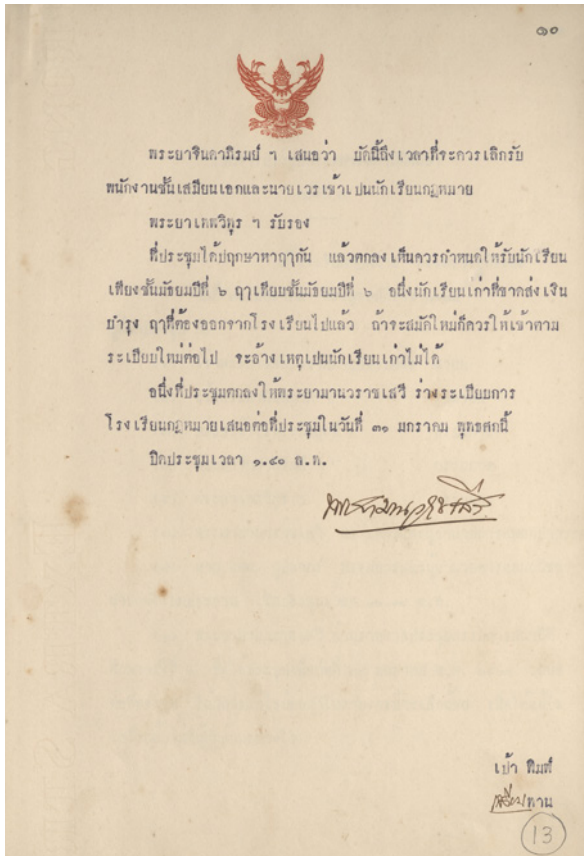 ๑๐
พระยาจินดาภิรมย์ ฯ เสนอว่า บัดนี้ถึงเวลาที่จะควรเลิกรับ
พนักงานชั้นเสมียนเอกและนายเวรเข้าเปนนักเรียนกฎหมาย
พระยาเทพวิทุร ฯ รับรอง
ที่ประชุมได้ปฤกษาหาฤๅกัน แล้วตกลงเห็นควรกำหนดให้รับนักเรียน
เพียงชั้นมัธยมปีที่ ๖ ฤๅเทียบชั้นมัธยมปีที่ ๖ อนึ่งนักเรียนเก่าที่ขาดส่งเงิน
บำรุง ฤๅที่ต้องออกจากโรงเรียนไปแล้ว ถ้าจะสมัคใหม่ก็ควรให้เข้าตาม
ระเบียบใหม่ต่อไป จะอ้างเหตุเปนนักเรียนเก่าไม่ได้
อนึ่งที่ประชุมตกลงให้พระยามานวราชเสวี ร่างระเบียบการ
โรงเรียนกฎหมายเสนอต่อที่ประชุมในวันที่ ๓๑ มกราคม พุทธศกนี้
ปิดประชุมเวลา ๑.๔๐ ล.ท.
พระยามานวราชเสวี
เป้า พิมพ์
ทาน
13